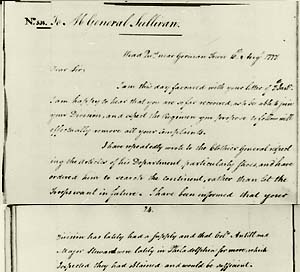 To M General Sullivan.
Head Qrs near German Town 10th Augt 1777
Dear Sir:
I am this day favoured with your letter of 7th Inst.
I am happy to hear that you are so far recovered, as to be able to join
your Division, and expect the Regimen you propose to follow will
effectually remove all your complaints.
I have repeatedly wrote to the Clothier General respect
ing the deficies of his Department, particularly Shoes, and have
ordered him to search the continent, rather than let the
Troops want in future. I have been informed that your
24.
Division has lately had a supply and that Colo Antill and
Major Steward were lately in Philadelphia for more, which
I expected they had obtained and would be sufficient.